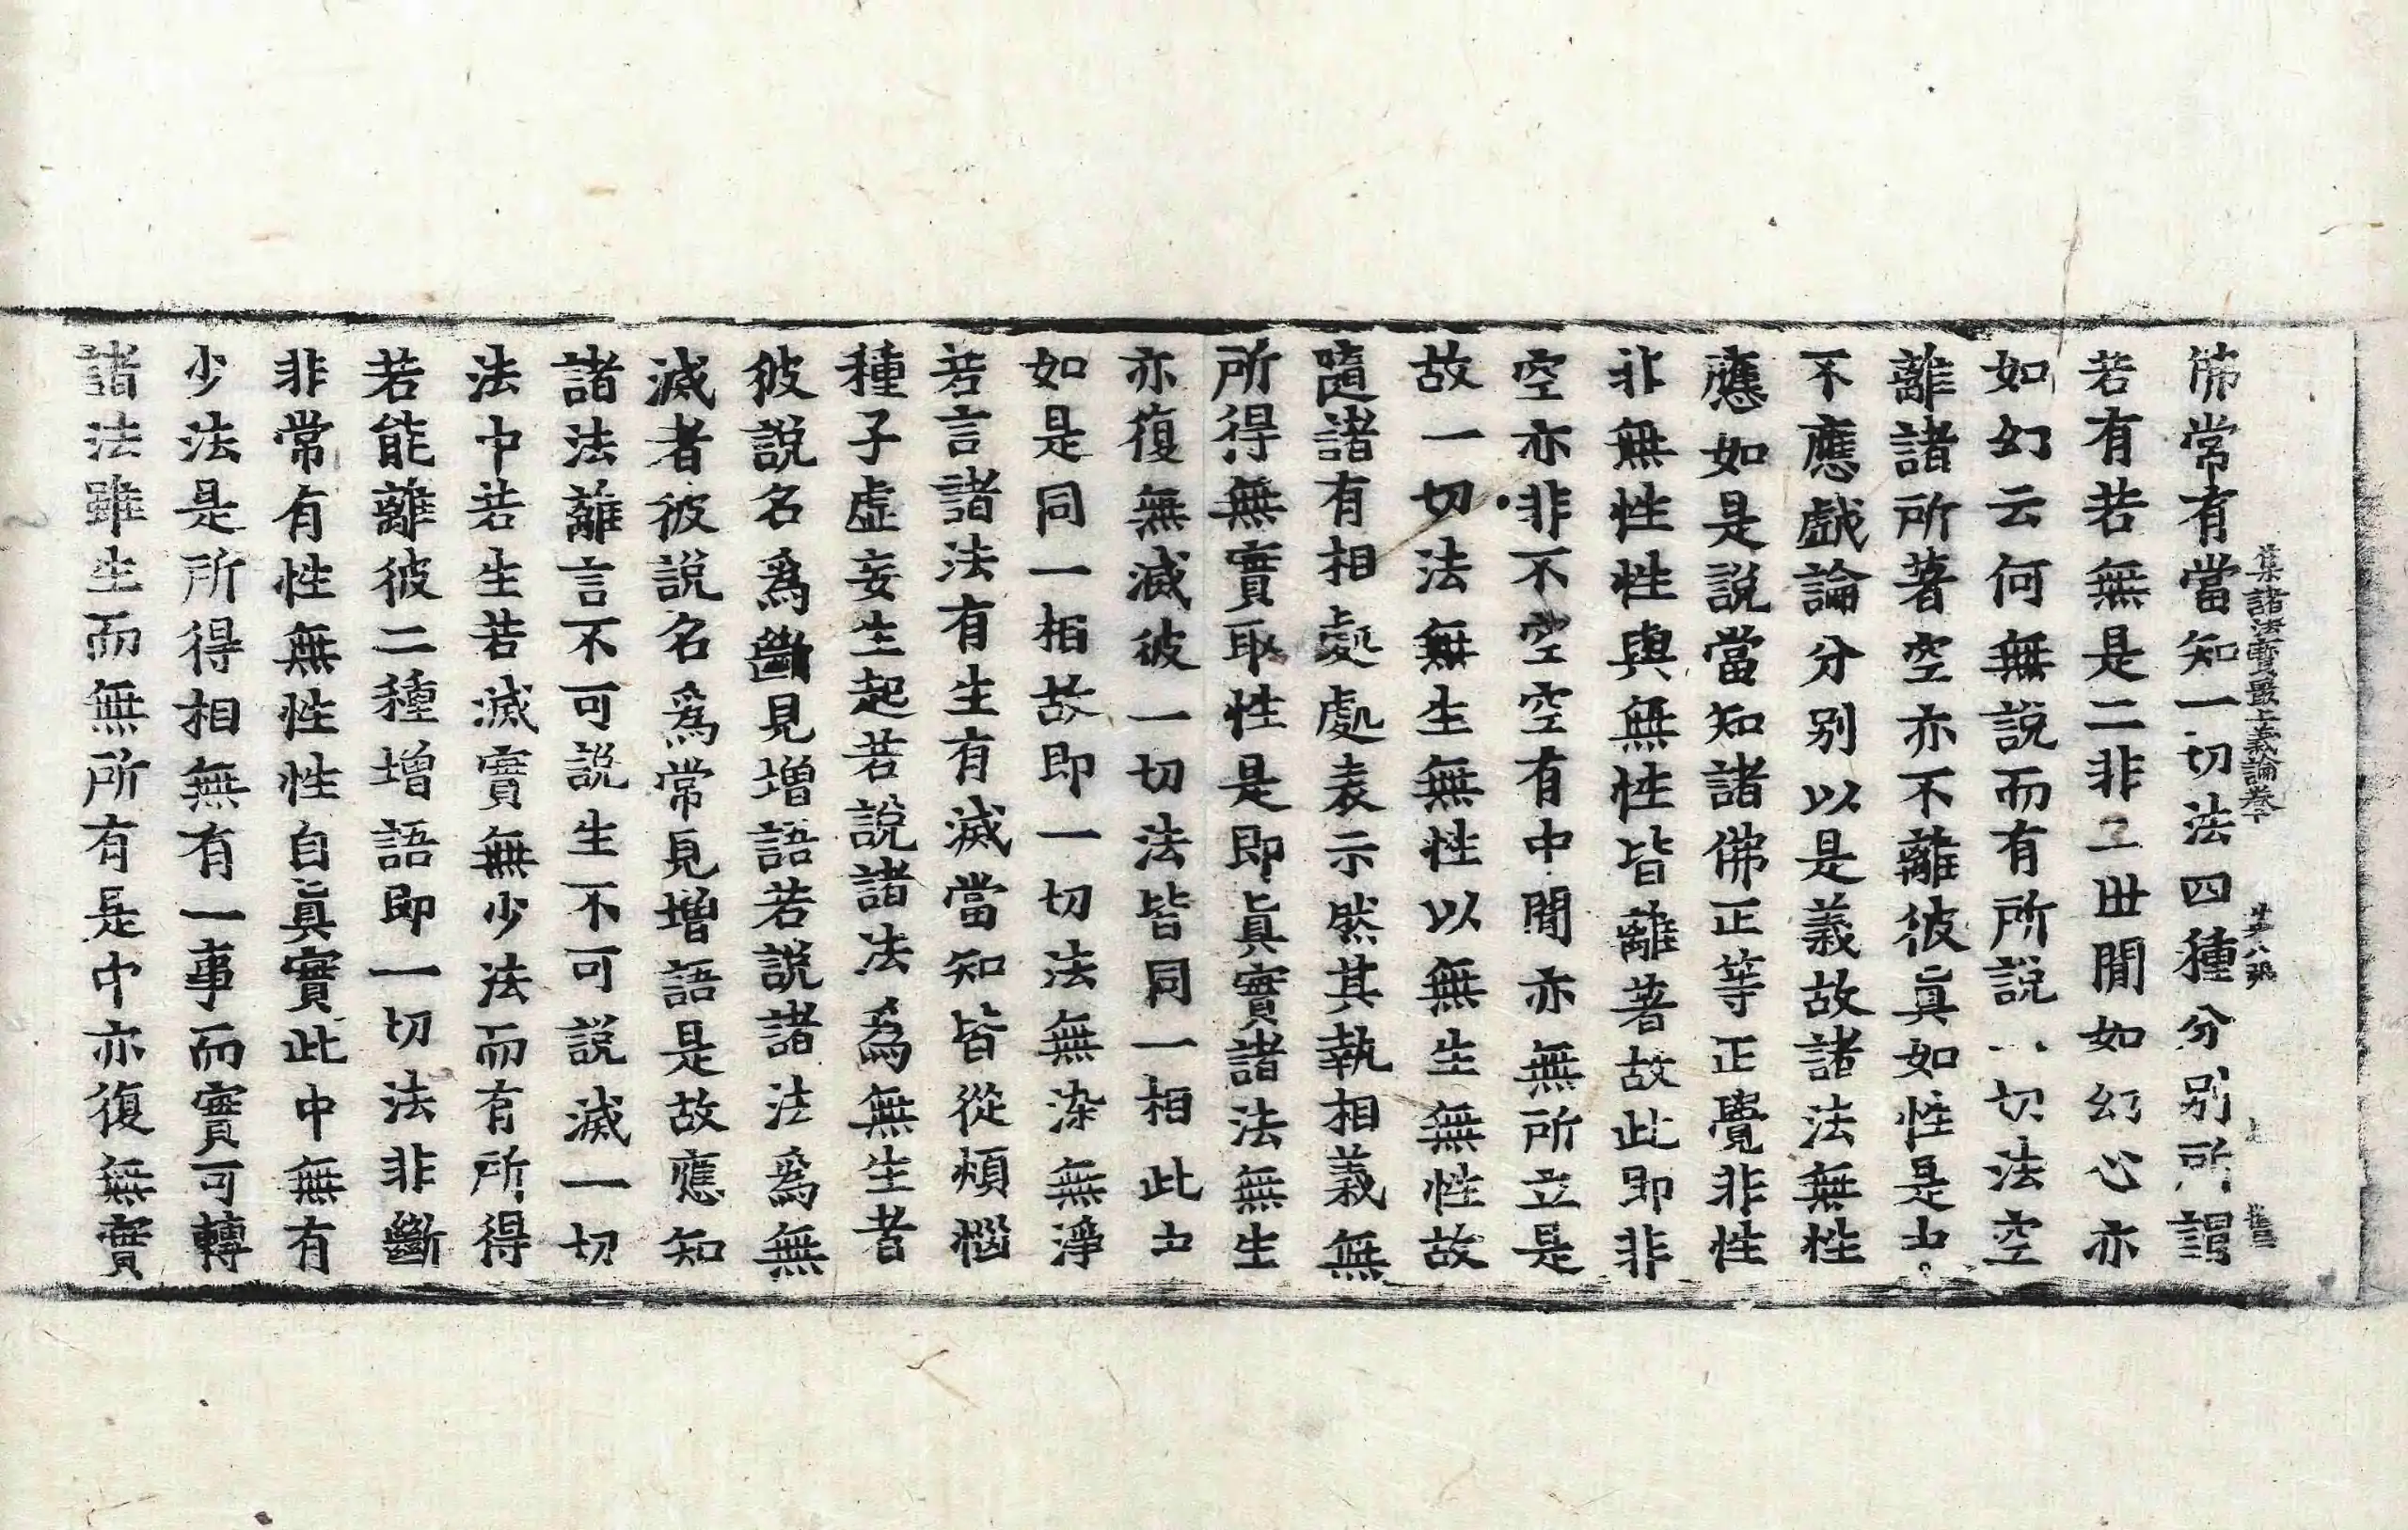 佛常有當知一切法四種分別所謂
集諸法寶最上義論卷下 第八張
若有若無是二非二世間如幻心亦
如幻云何無說而有所說一切法空
離諸所著空亦不離彼眞如性是中
不應戲論分別以是義故諸法無性
應如是說當知諸佛正等正覺非性
非無性性與無性皆離著故此即非
空亦非不空空有中間亦無所立是
故一切法無生無性以無生無性故
隨諸有相處處表示然其執相義無
所得無實取性是即眞實諸法無生
亦復無滅彼一切法皆同一相此中
如是同一相故即一切法無染無淨
若言諸法有生有滅當知皆從煩惱
種子虛妄生起若說諸法爲無生者
彼說名爲斷見增語若說諸法爲無
滅者彼說名爲常見增語是故應知
諸法離言不可說生不可說滅一切
法中若生若滅實無少法而有所得
若能離彼二種增語即一切法非斷
非常有性無性性自眞實此中無有
少法是所得相無有一事而實可轉
諸法雖生而無所有是中亦復無實